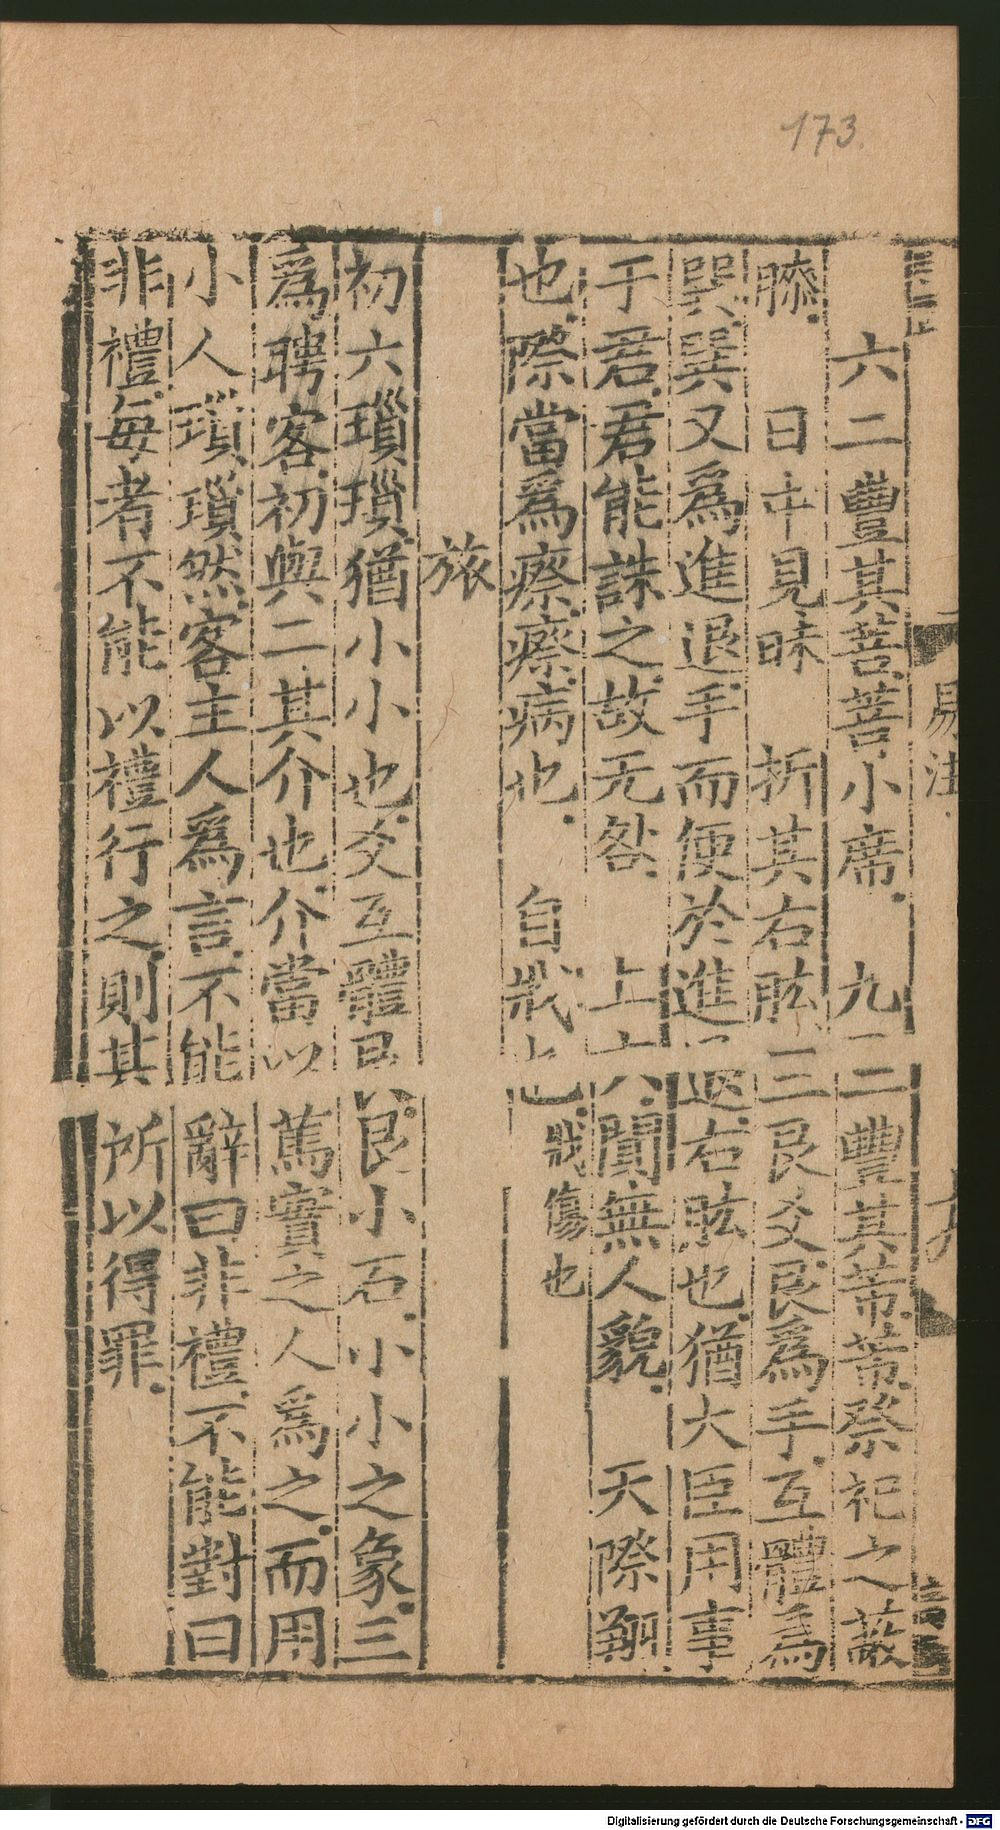 173
易注
六二豐其菩菩小席 九三豐其芾芾祭祀之蔽
膝 日中見昧 折其右肱三艮爻艮爲手互體爲
巽巽又爲進退手而便於進退右肱也猶大臣用事
于君君能誅之故无咎 上六闃無人貌 天際翔
也際當爲瘵瘵病也 自戕也戕傷也
旅
初六瑣瑣猶小小也爻互體艮艮小石小小之象三
爲聘客初與二其介也介當以篤實之人爲之而用
小人瑣瑣然客主人爲言不能辭曰非禮不能對曰
非禮每者不能以禮行之則其所以得罪
Digitalisierung gefördert durch die Deutsche Forschungsgemeinschaft - DFG